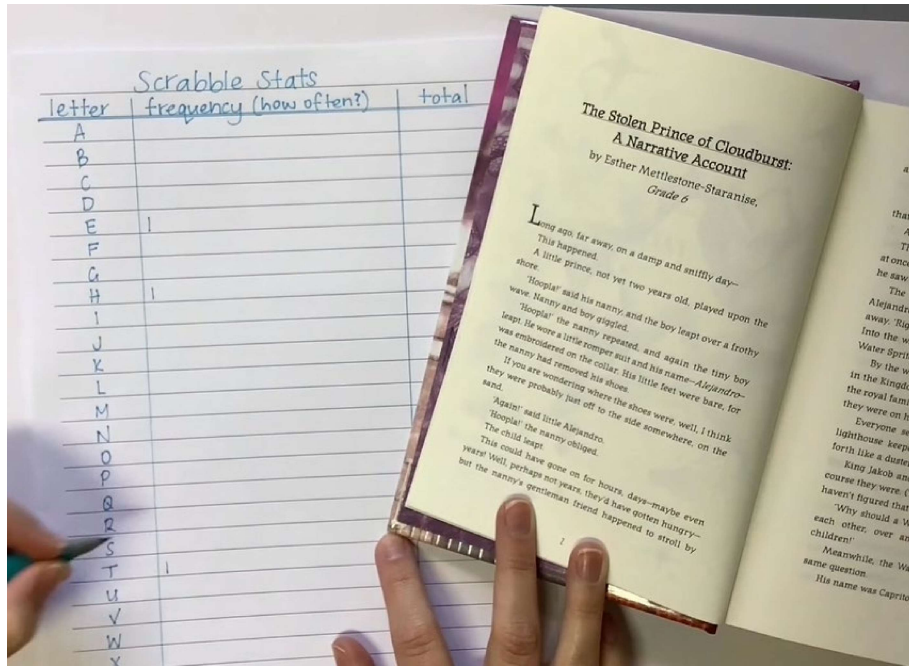 Scrabble Stats
letter frequency (how often?) total
A
B
C
D
E |
F
G
H |
I
J
K
L
M
N
O
P
Q
R
S
T |
U
V
W
The Stolen Prince of Cloudburst:
A Narrative Account
by Esther Mettlestone-Staranise,
Grade 6
Long ago, far away, on a damp and sniffly day—
This happened.
A little prince, not yet two years old, played upon the
shore.
'Hoopla!' said his nanny, and the boy leapt over a frothy
wave. Nanny and boy giggled.
'Hoopla!' the nanny repeated, and again the tiny boy
leapt. He wore a little romper suit and his name—Alejandro—
was embroidered on the collar. His little feet were bare, for
the nanny had removed his shoes.
If you are wondering where the shoes were, well, I think
they were probably just off to the side somewhere, on the
sand.
'Again!' said little Alejandro.
'Hoopla!' the nanny obliged.
The child leapt.
This could have gone on for hours, days—maybe even
years! Well, perhaps not years, they'd have gotten hungry—
but the nanny's gentleman friend happened to stroll by
1
that
at once
he saw
The
Alejandr
away. 'Rig
Into the w
Water Sprit
By the w
in the Kingdo
the royal fami
they were on h
Everyone se
lighthouse keepe
forth like a duster
King Jakob and
course they were. (
haven't figured that
'Why should a W
each other, over an
children!'
Meanwhile, the Wa
same question.
His name was Caprico